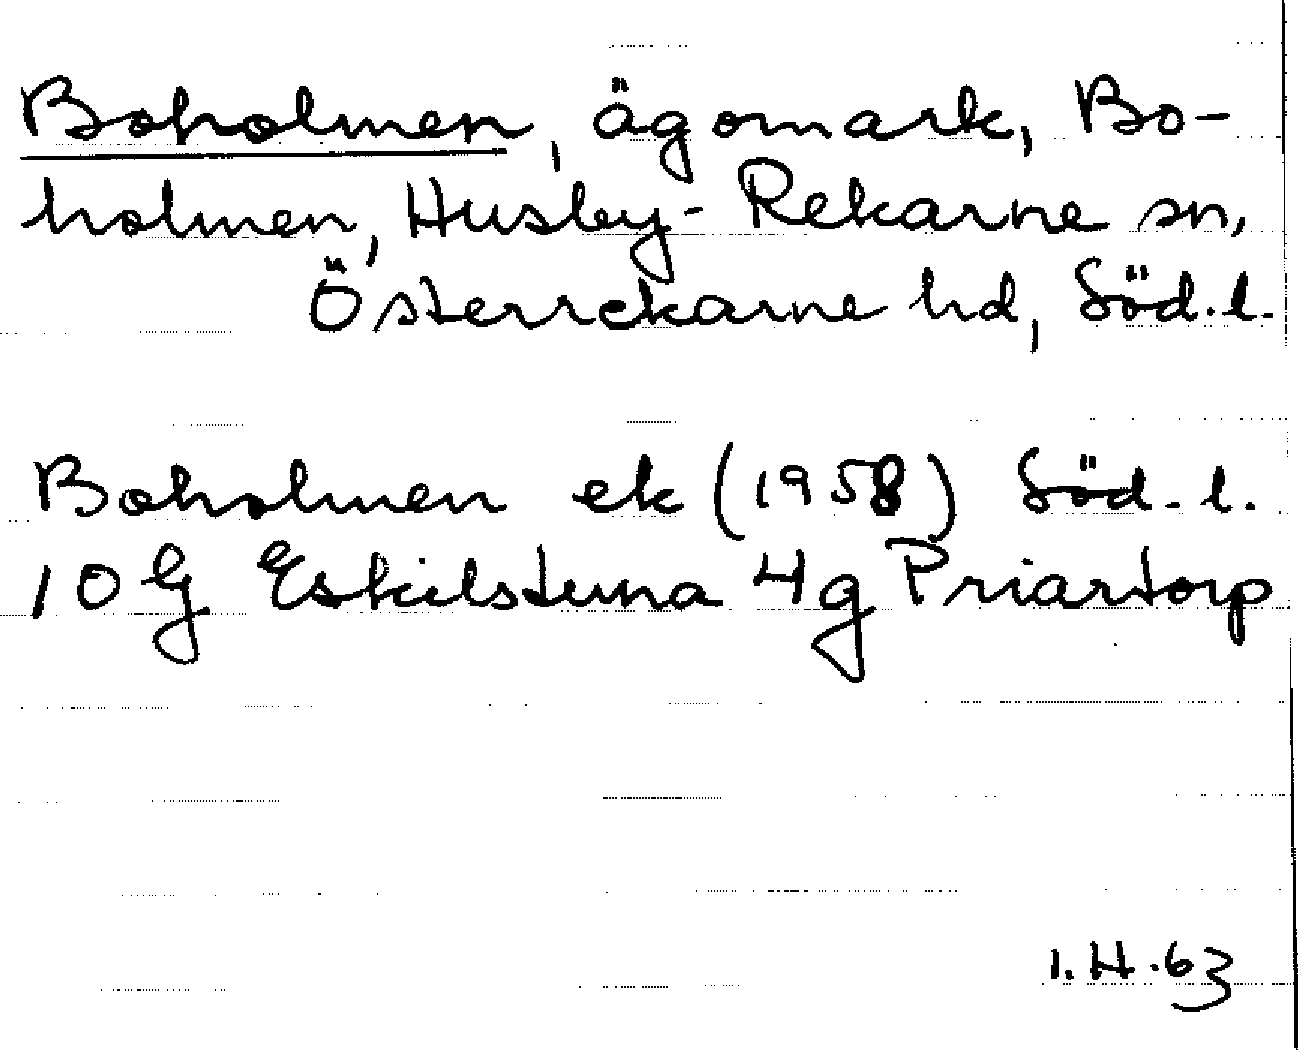 Boholmen, ägomark, Bo-
holmen, Husby-Rekarne sn,
Österrekarne hd, Söd.l.
Boholmen ek (1958) Söd.l.
10 G Eskilstuna 4g Priartorp
I.H.63